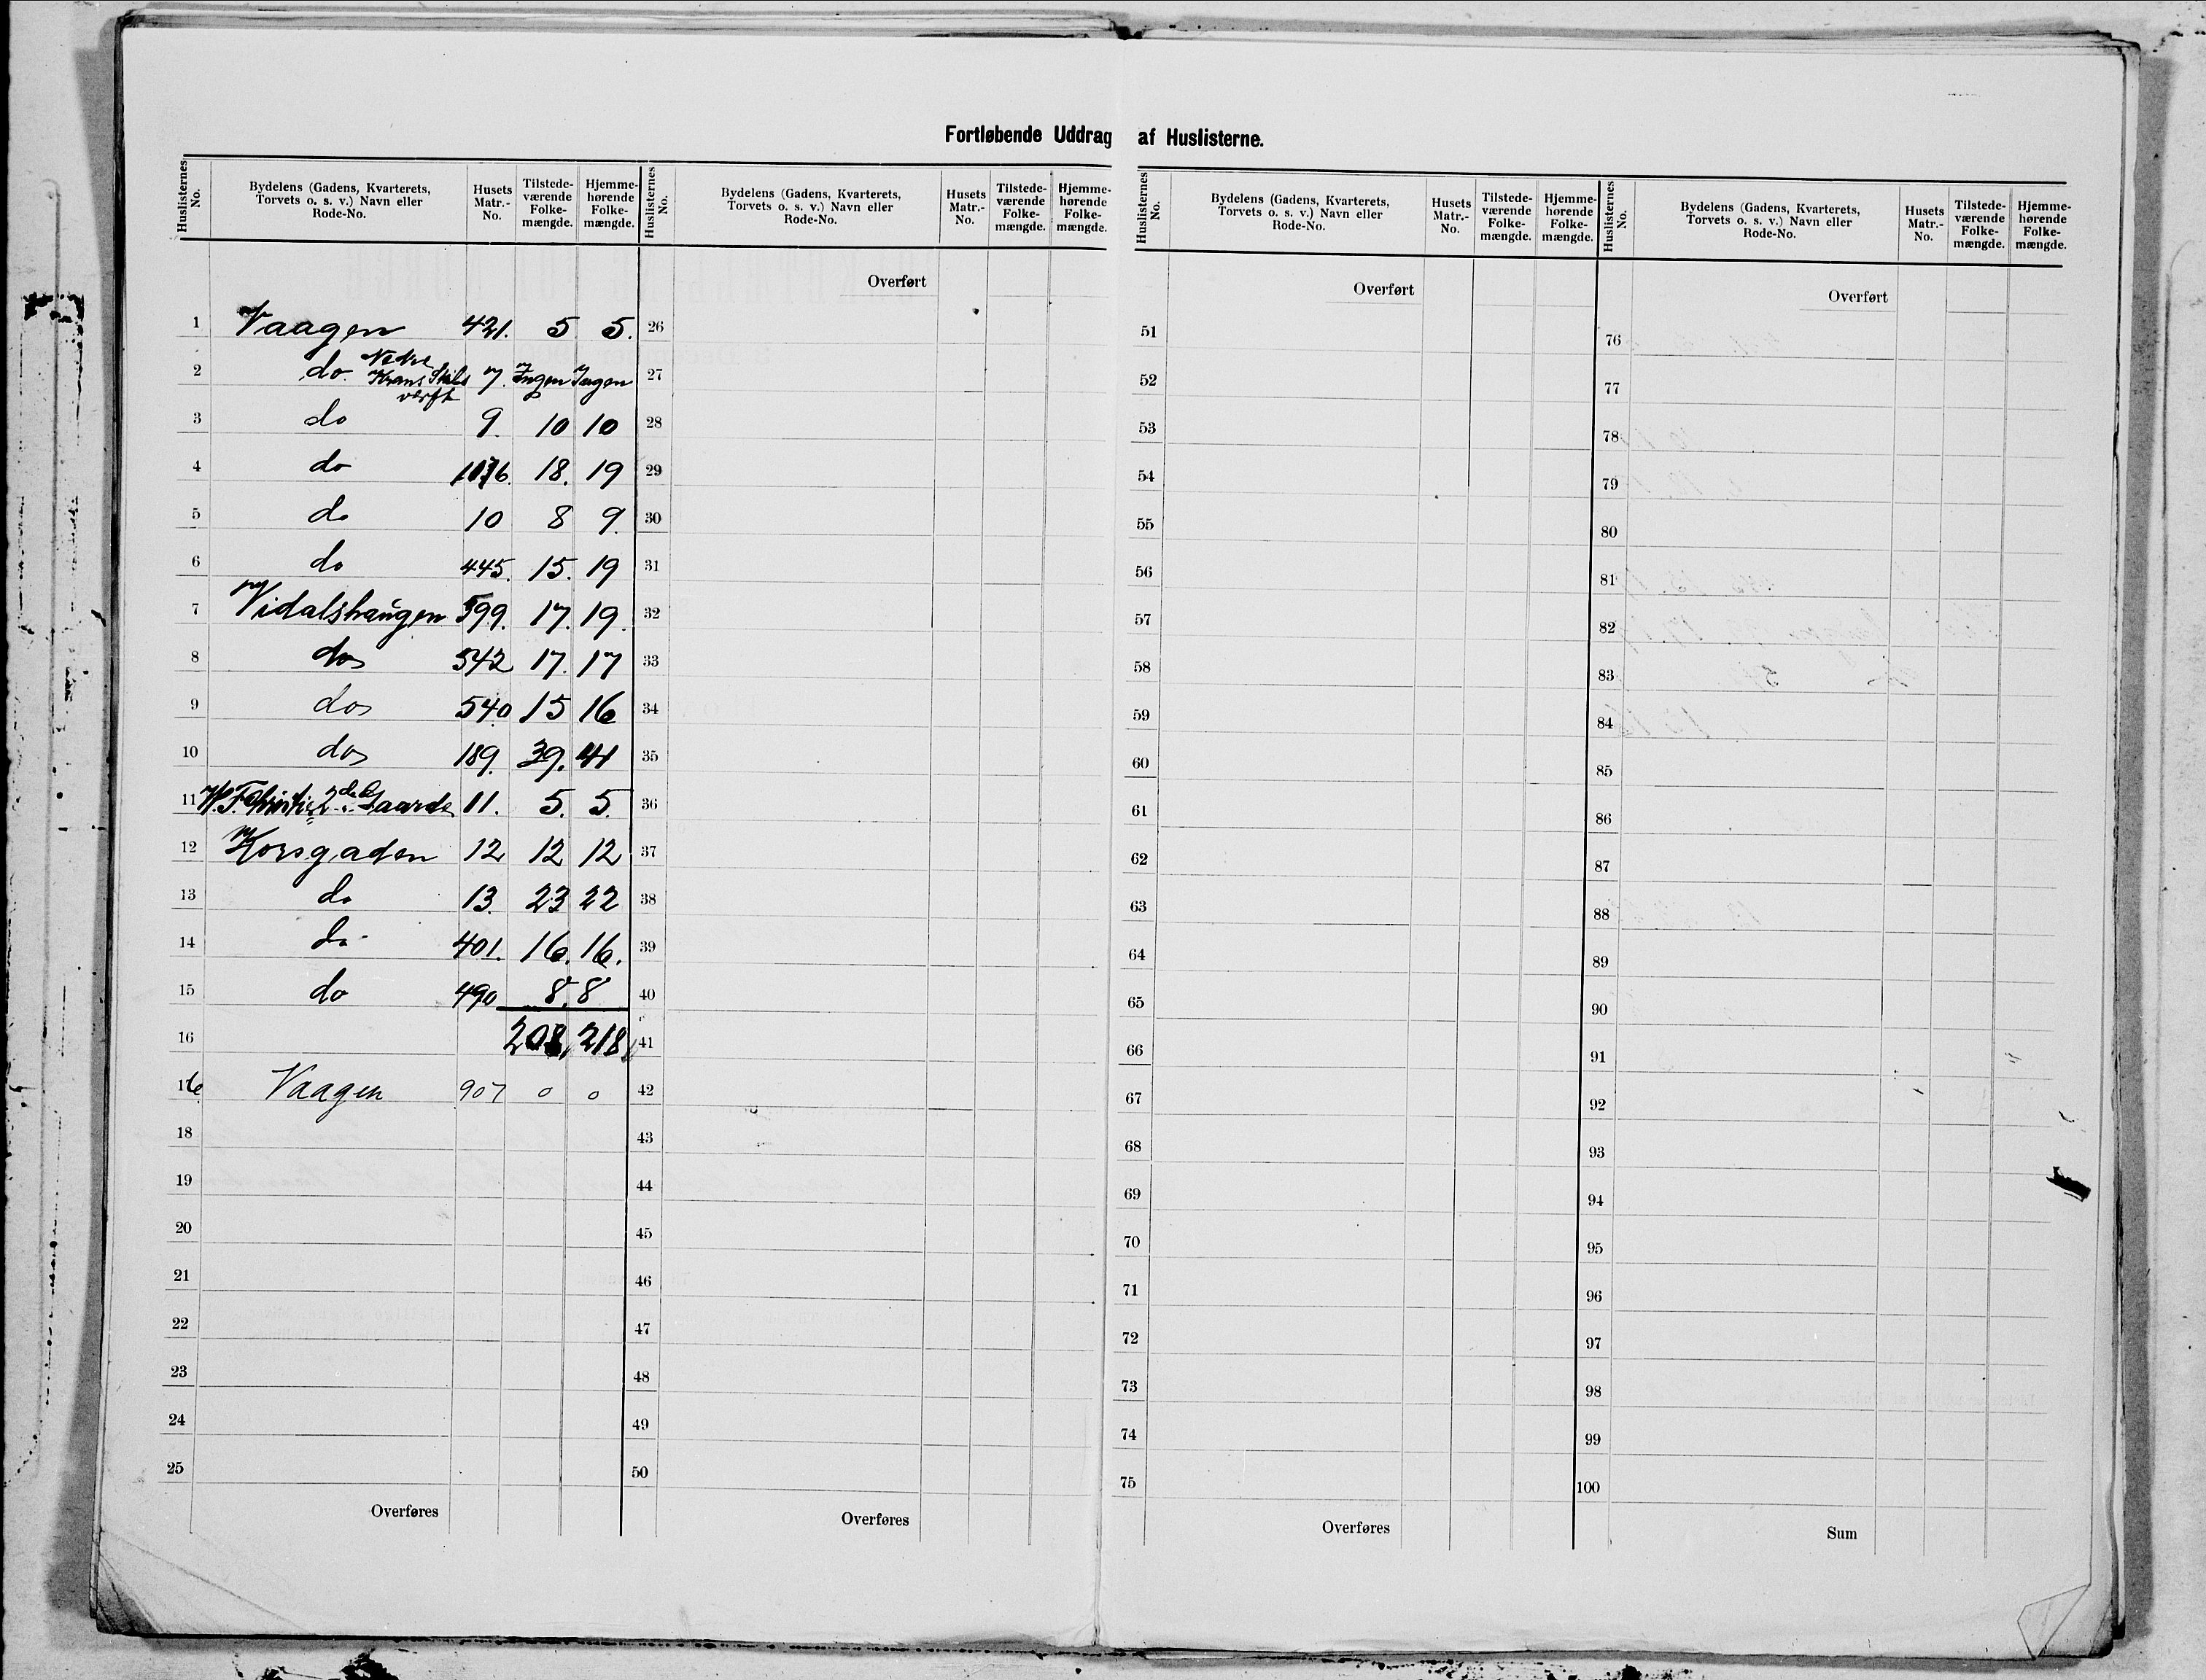 Fortløbende Uddrag af Huslisterne.
Huslisternes No. Bydelens (Gadens, Kvarterets, Torvets o. s. v.) Navn eller Rode-No. Husets Matr.-No. Tilstede-værende Folke-mængde. Hjemme-hørende Folke-mængde.
1 Vaagen 421. 5 5.
2 do. Nedre 7. Ingen Ingen
værft
3 do 9. 10 10
4 do 18. 19
5 do 10 8 9.
6 do 445. 15. 19
7 Vidalshaugen 599. 17. 19.
8 do 542 17. 17
9 do 540 15 16
10 do 189. 39. 41
11 11. 5. 5.
12 Korsgaden 12 12 12
13 do 13. 23 22
14 do 401. 16. 16.
15 do 490 8. 8
16 208, 218,
16 Vaagen 907 0 0
18
19
20
21
22
23
24
25
Overføres
Huslisternes No. Bydelens (Gadens, Kvarterets, Torvets o. s. v.) Navn eller Rode-No. Husets Matr.-No. Tilstede-værende Folke-mængde. Hjemme-hørende Folke-mængde.
Overført
26
27
28
29
30
31
32
33
34
35
36
37
38
39
40
41
42
43
44
45
46
47
48
49
50
Overføres
Huslisternes No. Bydelens (Gadens, Kvarterets, Torvets o. s. v.) Navn eller Rode-No. Husets Matr.-No. Tilstede-værende Folke-mængde. Hjemme-hørende Folke-mængde.
Overført
51
52
53
54
55
56
57
58
59
60
61
62
63
64
65
66
67
68
69
70
71
72
73
74
75
Overføres
Huslisternes No. Bydelens (Gadens, Kvarterets, Torvets o. s. v.) Navn eller Rode-No. Husets Matr.-No. Tilstede-værende Folke-mængde. Hjemme-hørende Folke-mængde.
Overført
76
77
78
79
80
81
82
83
84
85
86
87
88
89
90
91
92
93
94
95
96
97
98
99
100
Sum